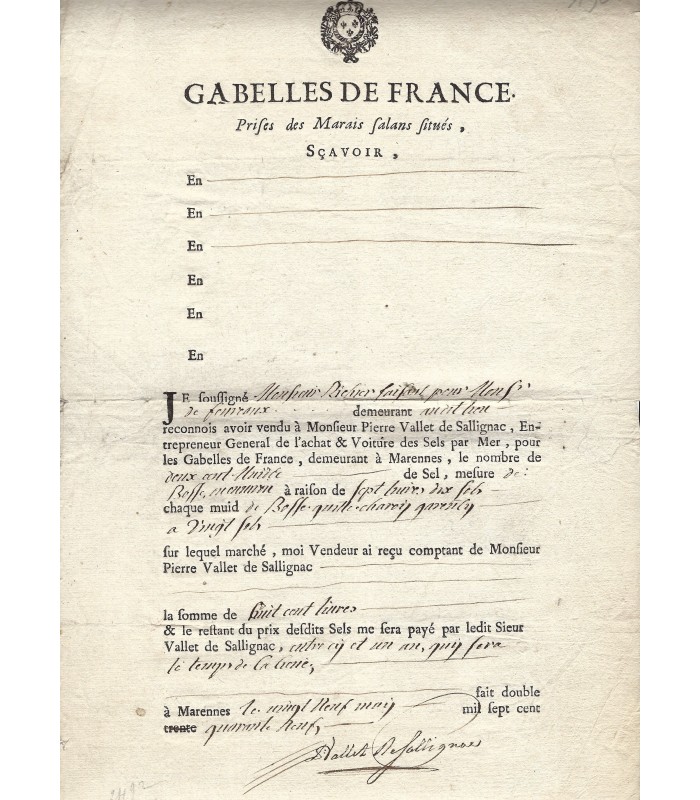 GABELLES DE FRANCE.
Prises des Marais salans situés,
SÇAVOIR,
En
En
En
En
En
En
JE soussigné Monsieur Richer faisant pour Mons.r
de demeurant
reconnois avoir vendu à Monsieur Pierre Vallet de Sallignac, En-
trepreneur General de l'achat & Voiture des Sels par Mer, pour
les Gabelles de France, demeurant à Marennes, le nombre de
deux cent Muids de Sel, mesure de
Bosse à raison de sept livres dix sols
chaque muid de Bosse quitte
a Vingt sols
sur lequel marché, moi Vendeur ai reçu comptant de Monsieur
Pierre Vallet de Sallignac
la somme de huit cent livres
& le restant du prix desdits Sels me sera payé par ledit Sieur
Vallet de Sallignac, entre cy et un an, quy sera
le temps de la livré,
fait double
à Marennes le vingt Neuf may mil sept cent
trente quarante Neuf,
Vallet De Sallignac